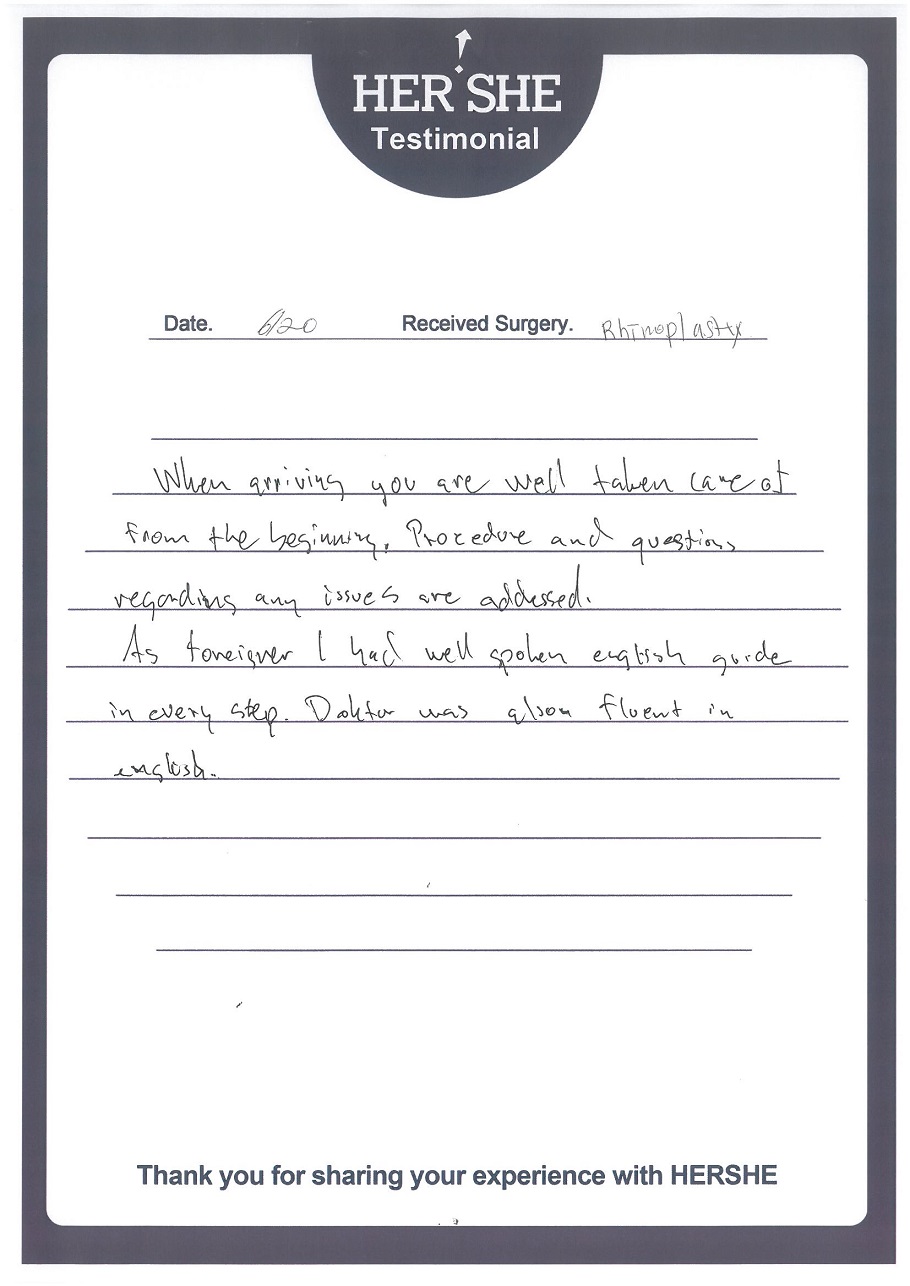 HER SHE
Testimonial
Date. 6/20 Received Surgery. Rhinoplasty
When arriving you are well taken care of
from the beginning. Procedure and questions
regarding any issues are addessed.
As foreigner I had well spoken english guide
in every step. Doktor was also fluent in
english.
Thank you for sharing your experience with HERSHE